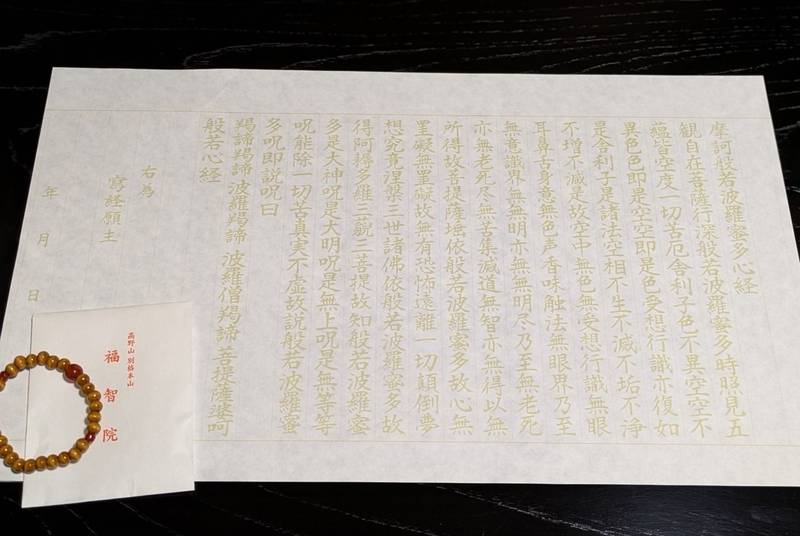 摩訶般若波羅蜜多心経
観自在菩薩行深般若波羅蜜多時照見五
蘊皆空度一切苦厄舎利子色不異空空不
異色色即是空空即是色受想行識亦復如
是舎利子是諸法空相不生不滅不垢不浄
不増不減是故空中無色無受想行識無眼
耳鼻舌身意無色声香味触法無眼界乃至
無意識界無無明亦無無明尽乃至無老死
亦無老死尽無苦集滅道無智亦無得以無
所得故菩提薩埵依般若波羅蜜多故心無
罣礙無罣礙故無有恐怖遠離一切顛倒夢
想究竟涅槃三世諸佛依般若波羅蜜多故
得阿耨多羅三藐三菩提故知般若波羅蜜
多是大神呪是大明呪是無上呪是無等等
呪能除一切苦真実不虚故説般若波羅蜜
多呪即説呪曰
羯諦羯諦 波羅羯諦 波羅僧羯諦 菩提薩婆訶
般若心経
右為
寫経願主
年 月 日
高野山 別格本山
福智院